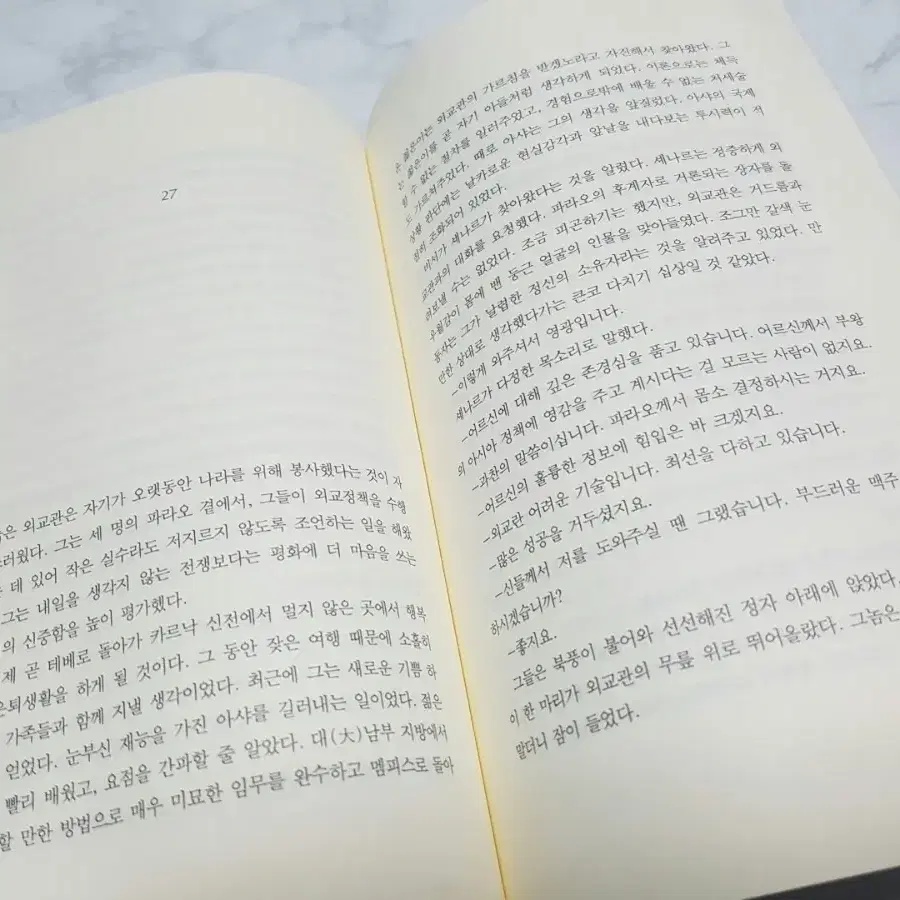 27
은 외교관은 자기가 오랫동안 나라를 위해 봉사했다는 것이 자
러웠다. 그는 세 명의 파라오 곁에서, 그들이 외교정책을 수행
데 있어 작은 실수라도 저지르지 않도록 조언하는 일을 해왔
그는 내일을 생각지 않는 전쟁보다는 평화에 더 마음을 쓰는
의 신중함을 높이 평가했다.
제 곧 테베로 돌아가 카르낙 신전에서 멀지 않은 곳에서 행복
은퇴생활을 하게 될 것이다. 그 동안 잦은 여행 때문에 소홀히
가족들과 함께 지낼 생각이었다. 최근에 그는 새로운 기쁨 하
얻었다. 눈부신 재능을 가진 아샤를 길러내는 일이었다. 젊은
빨리 배웠고, 요점을 간파할 줄 알았다. 대(大)남부 지방에서
할 만한 방법으로 매우 미묘한 임무를 완수하고 멤피스로 돌아
는 젊은이는 외교관의 가르침을 받겠노라고 자진해서 찾아왔다. 그
는 젊은이를 곧 자기 아들처럼 생각하게 되었다. 이론으로는 체득
할 수 없는 절차를 일러주었고, 경험으로밖에 배울 수 없는 처세술
도 가르쳐주었다. 때로 아샤는 그의 생각을 앞질렀다. 아샤의 국제
상황 판단에는 날카로운 현실감각과 앞날을 내다보는 투시력이 적
절히 조화되어 있었다.
비서가 세나르가 찾아왔다는 것을 알렸다. 셰나르는 정중하게 외
교관과의 대화를 요청했다. 파라오의 후계자로 거론되는 장자를 돌
려보낼 수는 없었다. 조금 피곤하기는 했지만, 외교관은 거드름과
우월감이 몸에 밴 둥근 얼굴의 인물을 맞아들였다. 조그만 갈색 눈
동자는 그가 날렵한 정신의 소유자라는 것을 알려주고 있었다. 만
만한 상대로 생각했다가는 큰코 다치기 십상일 것 같았다.
-이렇게 와주셔서 영광입니다.
셰나르가 다정한 목소리로 말했다.
-어르신에 대해 깊은 존경심을 품고 있습니다. 어르신께서 부왕
의 아시아 정책에 영감을 주고 계시다는 걸 모르는 사람이 없지요.
-과찬의 말씀이십니다. 파라오께서 몸소 결정하시는 거지요.
-어르신의 훌륭한 정보에 힘입은 바 크겠지요.
-외교란 어려운 기술입니다. 최선을 다하고 있습니다.
-많은 성공을 거두셨지요.
-신들께서 저를 도와주실 땐 그랬습니다. 부드러운 맥주
하시겠습니까?
-좋지요.
그들은 북풍이 불어와 선선해진 정자 아래에 앉았다.
이 한 마리가 외교관의 무릎 위로 뛰어올랐다. 그놈은
말더니 잠이 들었다.